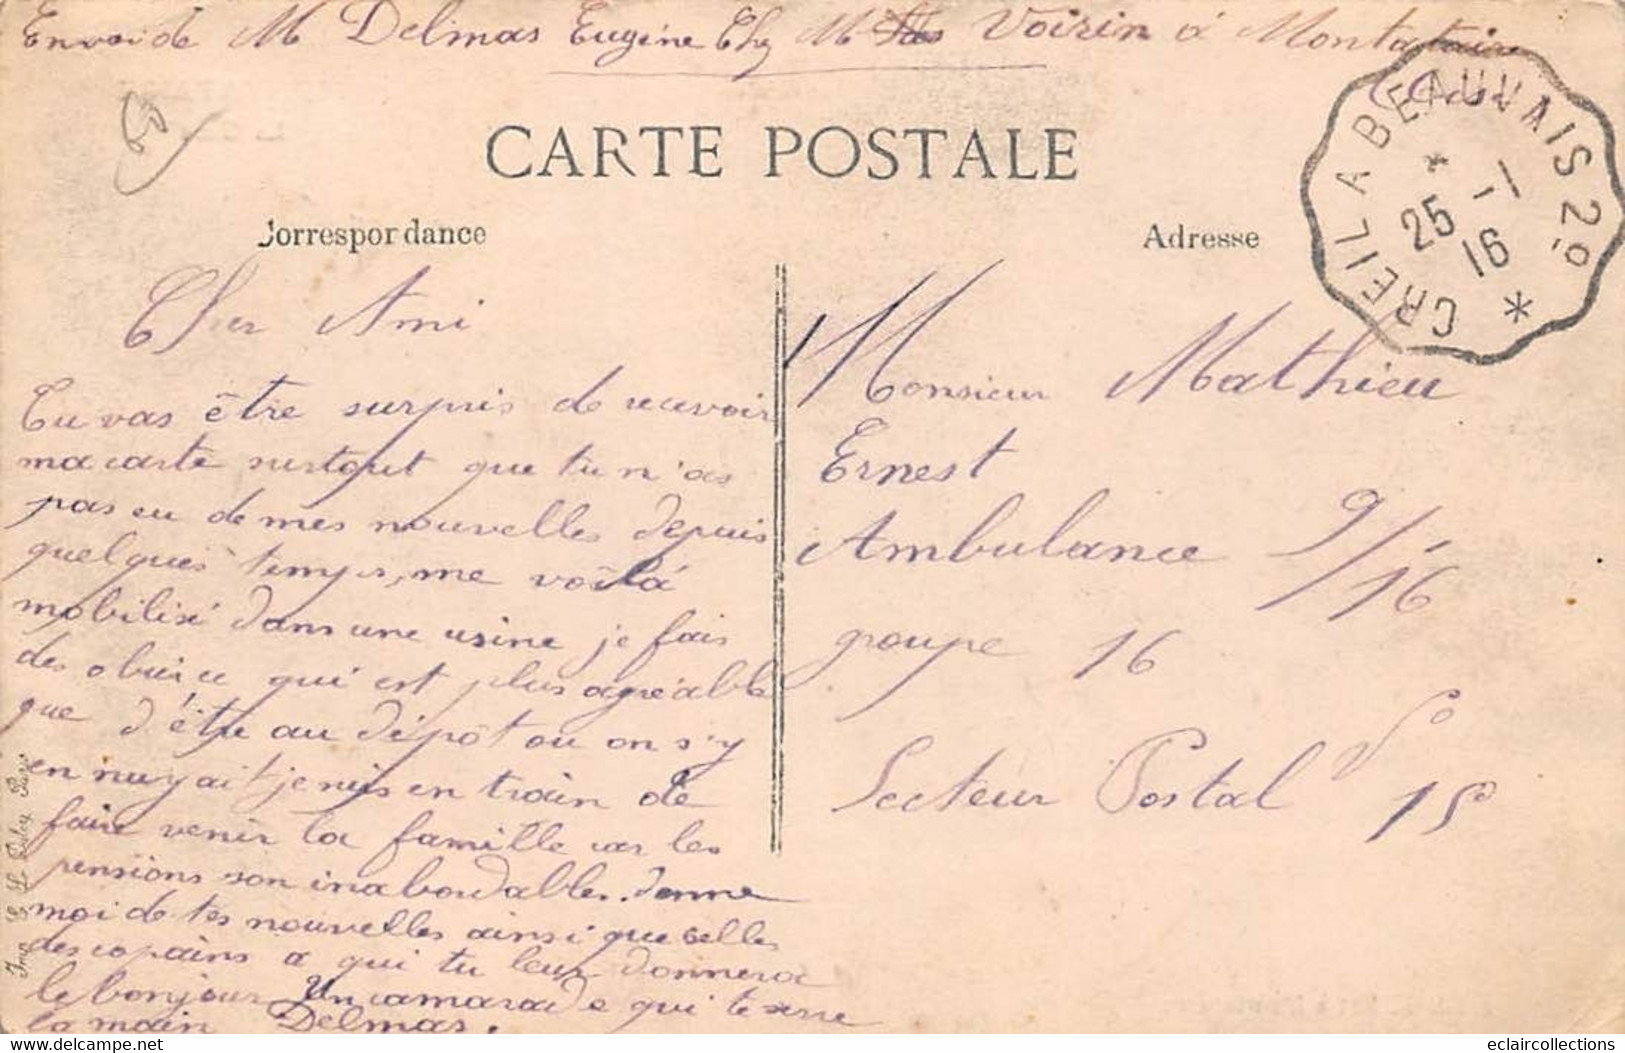 Envoi de M Delmas Eugène Chez M Voirin à Montataire
(Oise)
CREIL A BEAUVAIS 2º
25 -1
16
CARTE POSTALE
Correspondance
Adresse
Cher Ami
Tu vas être surpris de recevoir
ma carte surtout que tu n'as
pas eu de mes nouvelles depuis
quelques temps, me voilà
mobilisé dans une usine je fais
des obus ce qui est plus agréable
que d'être au dépôt ou on s'y
ennuyait je suis en train de
faire venir la famille car les
pensions son inabordables. donne
moi de tes nouvelles ainsi que celles
des copains a qui tu leur donneras
le bonjour Un camarade qui te serre
la main Delmas.
Monsieur Mathieu
Ernest
Ambulance 9/16
groupe 16
Secteur Postal Nº
150
eclaircollections